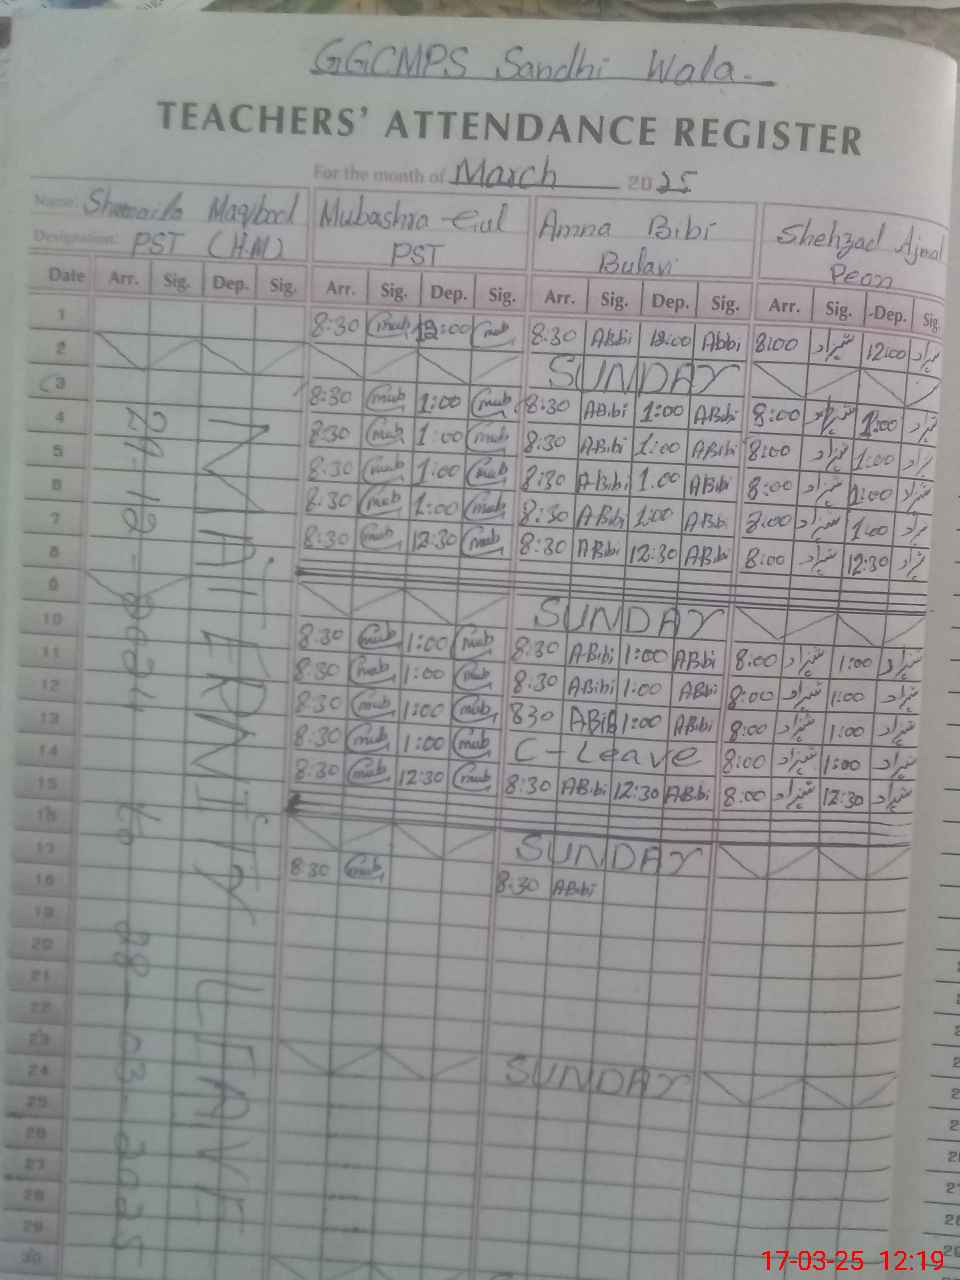 GGCMPS Sandhi Wala
TEACHERS' ATTENDANCE REGISTER
For the month of March 2025
Name: Maqbool Mubashra Gul Amna Bibi Shehzad Ajmal
Designation: PST (H.M) PST Peon
Date Arr. Sig. Dep. Sig. Arr. Sig. Dep. Sig. Arr. Sig. Dep. Sig. Arr. Sig. Dep. Sig.
1 8:30 mub 12:00 mub 8:30 ABibi 12:00 Abbi 8:00 شہزاد 12:00 شہزاد
2 SUNDAY
3 8:30 mub 1:00 mub 8:30 ABibi 1:00 ABibi 8:00 شہزاد 1:00
4 8:30 mub 1:00 mub 8:30 ABibi 1:00 ABibi 8:00 شہزاد 1:00
5 8:30 mub 1:00 mub 8:30 ABibi 1:00 ABibi 8:00 شہزاد 1:00
6 8:30 mub 1:00 mub 8:30 ABibi 1:00 ABibi 8:00 شہزاد 1:00
7 8:30 mub 12:30 mub 8:30 ABibi 12:30 ABibi 8:00 شہزاد 12:30
8
9 SUNDAY
10 8:30 mub 1:00 mub 8:30 ABibi 1:00 ABibi 8:00 شہزاد 1:00 شہزاد
11 8:30 mub 1:00 mub 8:30 ABibi 1:00 ABibi 8:00 شہزاد 1:00 شہزاد
12 8:30 mub 1:00 mub 830 ABiB 1:00 ABibi 8:00 شہزاد 1:00 شہزاد
13 8:30 mub 1:00 mub C-Leave 8:00 شہزاد 1:00 شہزاد
14 8:30 mub 12:30 mub 8:30 ABibi 12:30 ABibi 8:00 شہزاد 12:30 شہزاد
15
16 SUNDAY
17 8:30 mub 8:30 ABibi
18
19
20
21
22
23 SUNDAY
24
25
26
27
28
29
30
MATERNITY LEAVE
29-12-2024 to 28-03-2025
17-03-25 12:19